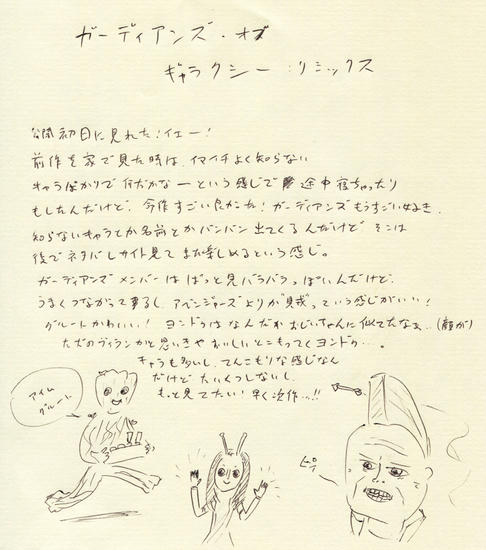 ガーディアンズ・オブ
ギャラクシー:リミックス
公開初日に見れた!イエー!
前作を家で見た時は、イマイチよく知らない
キャラばかりで何だかなーという感じで途中寝ちゃったり
もしたんだけど、今作すごい良かった!ガーディアンズもうすごい好き。
知らないキャラとか名前とかバンバン出てくるんだけどそこは
後でネタバレサイト見てまた楽しめるという感じ。
ガーディアンズメンバーはぱっと見バラバラっぽいんだけど、
うまくつながってるし、アベンジャーズよりが"家族"っていう感じがいい!
グルートかわいい!ヨンドゥはなんだかおじいちゃんに似てたなぁ..(顔が)
ただのヴィランかと思いきやおいしいとこもってくヨンドゥ...。
キャラも多いし、てんこもりな感じなん
だけどたいくつしないし、
もっと見てたい!早く次作...!!
アイム
グルート
ピィ